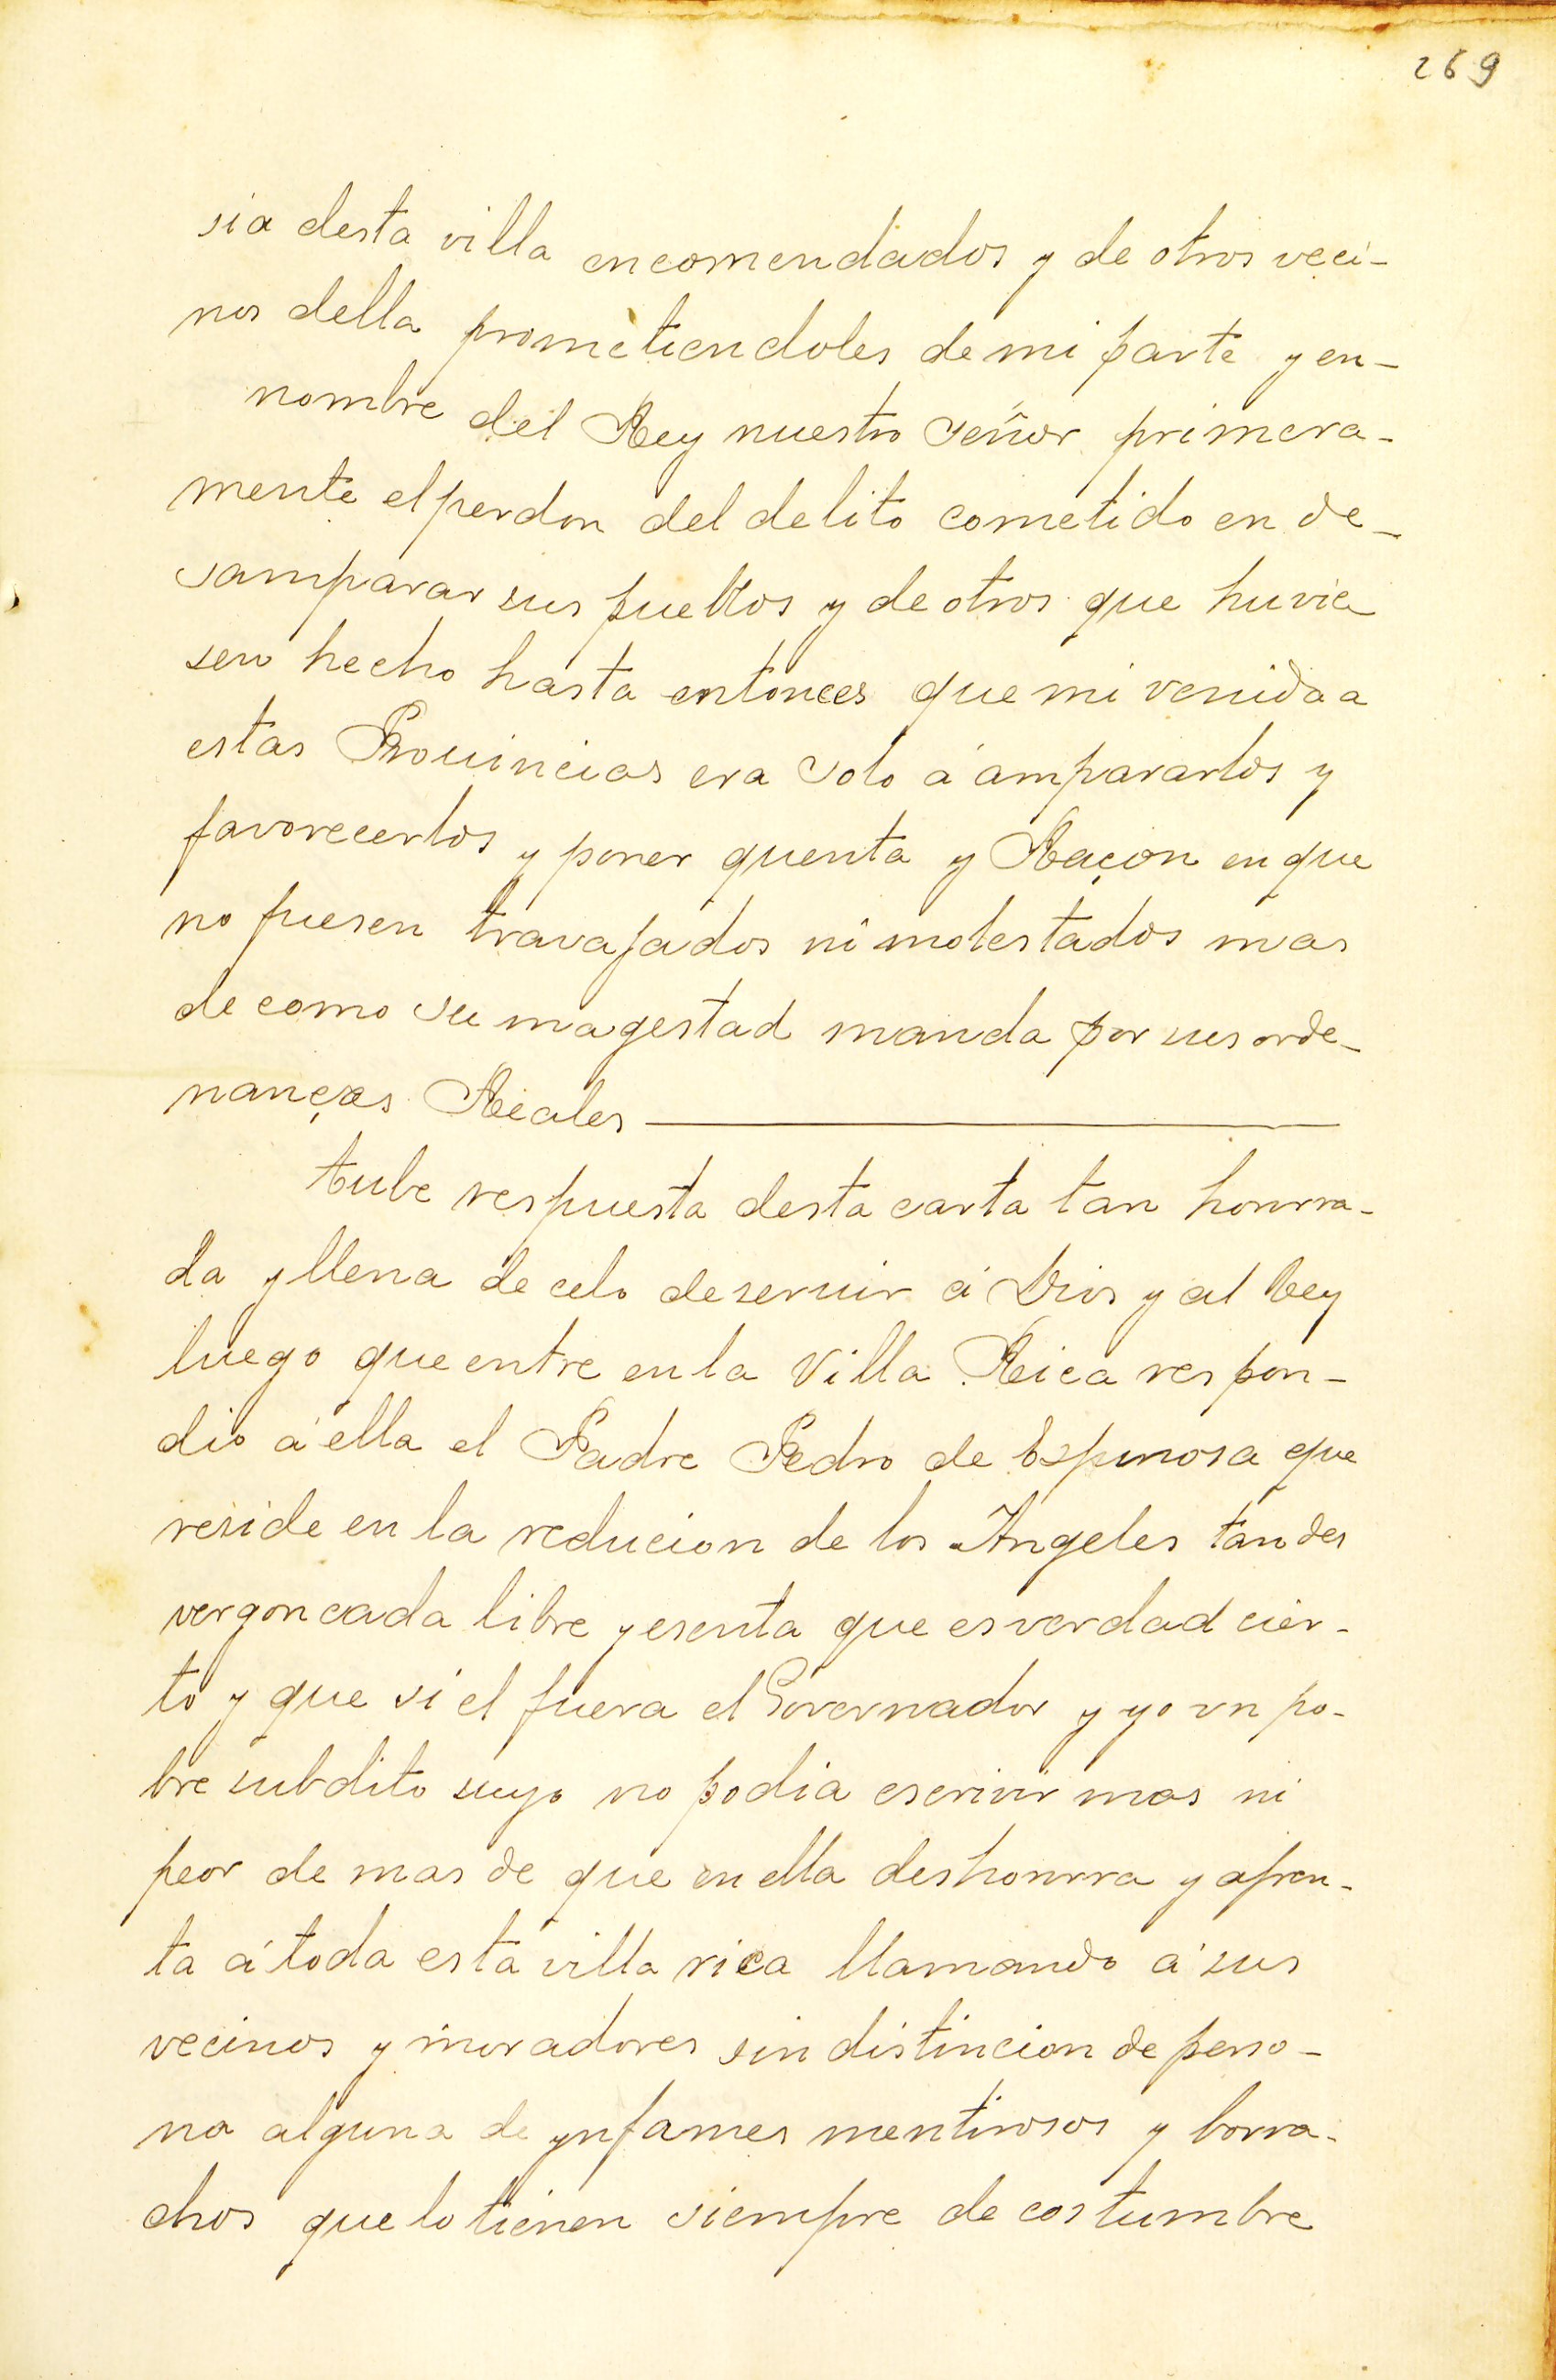 269
sia desta villa encomendados y de otros veci-
nos della prometiendoles de mi parte y en-
nombre del Rey nuestro Señor primera-
mente el perdon del delito cometido en de-
samparar sus pueblos y de otros que huvie
sen hecho hasta entonces que mi venida a
estas Prouincias era solo á ampararlos y
favorecerlos y poner quenta y Raçon en que
no fuesen travajados ni molestados mas
de como su magestad manda por sus orde-
nanças Reales
tube respuesta desta carta tan honrra-
da y llena de celo de seruir á Dios y al Rey
luego que entre en la Villa Rica respon-
dio á ella el Padre Pedro de Espinosa que
reside en la reducion de los Angeles tan des
vergoncada libre y esenta que es verdad cier-
to y que si el fuera el Governador y yo vn po-
bre subdito suyo no podia escrivir mas ni
peor de mas de que en ella deshonrra y afren-
ta á toda esta villa rica llamando á sus
vecinos y moradores sin distincion de perso-
na alguna de ynfames mentirosos y borra-
chos que lo tienen siempre de costumbre